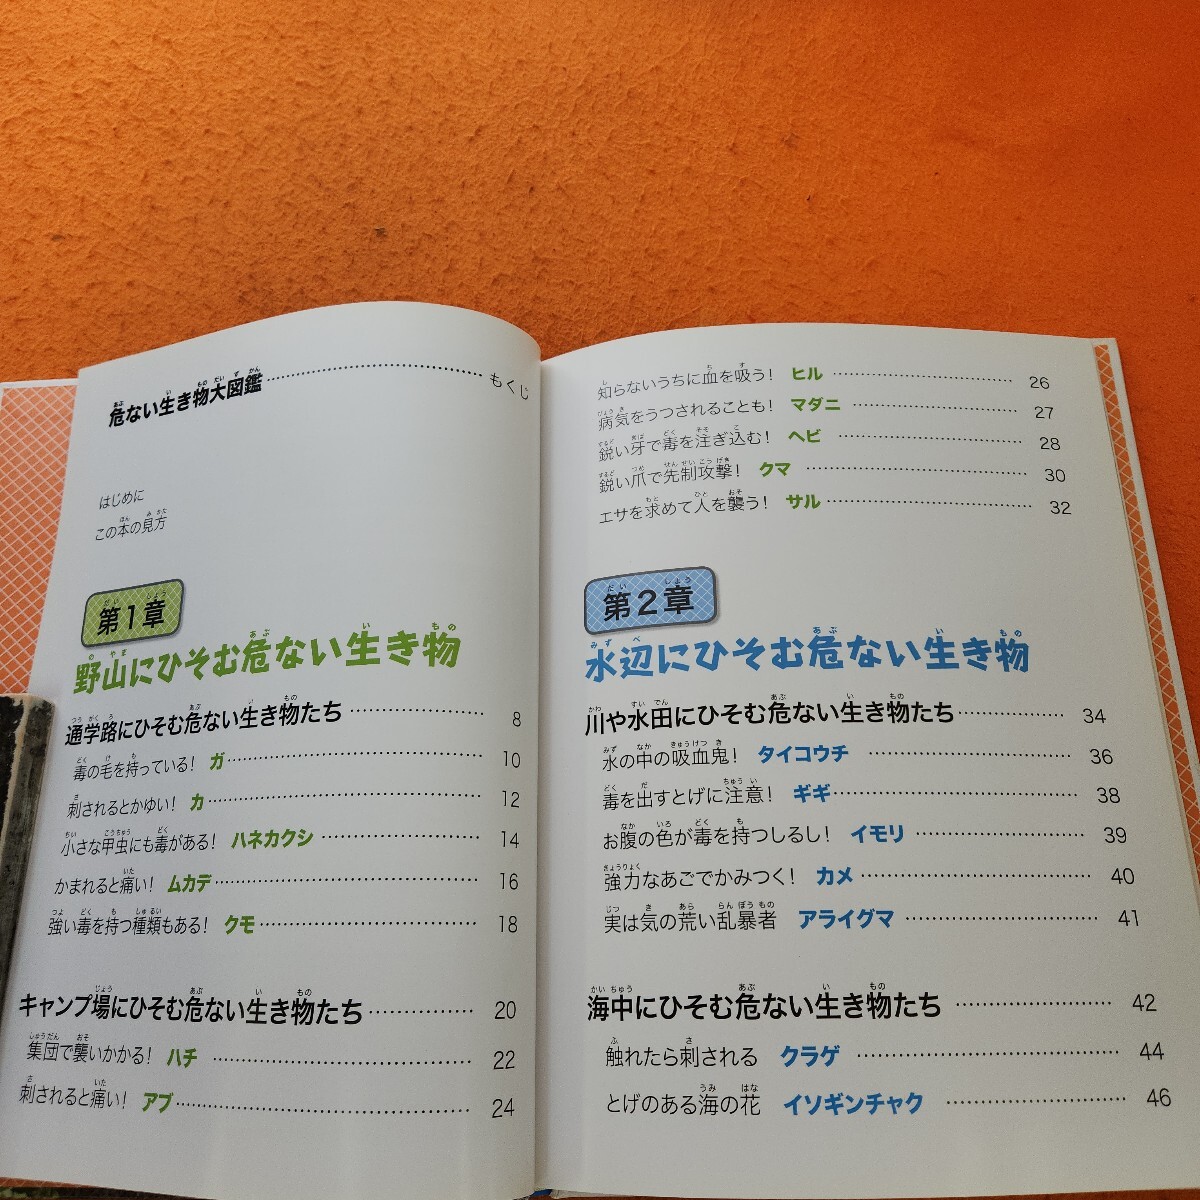 危ない生き物大図鑑 もくじ
はじめに
この本の見方
第1章
野山にひそむ危ない生き物
通学路にひそむ危ない生き物たち 8
毒の毛を持っている! ガ 10
刺されるとかゆい! カ 12
小さな甲虫にも毒がある! ハネカクシ 14
かまれると痛い! ムカデ 16
強い毒を持つ種類もある! クモ 18
キャンプ場にひそむ危ない生き物たち 20
集団で襲いかかる! ハチ 22
刺されると痛い! アブ 24
知らないうちに血を吸う! ヒル 26
病気をうつされることも! マダニ 27
鋭い牙で毒を注ぎ込む! ヘビ 28
鋭い爪で先制攻撃! クマ 30
エサを求めて人を襲う! サル 32
第2章
水辺にひそむ危ない生き物
川や水田にひそむ危ない生き物たち 34
水の中の吸血鬼! タイコウチ 36
毒を出すとげに注意! ギギ 38
お腹の色が毒を持つしるし! イモリ 39
強力なあごでかみつく! カメ 40
実は気の荒い乱暴者 アライグマ 41
海中にひそむ危ない生き物たち 42
触れたら刺される クラゲ 44
とげのある海の花 イソギンチャク 46